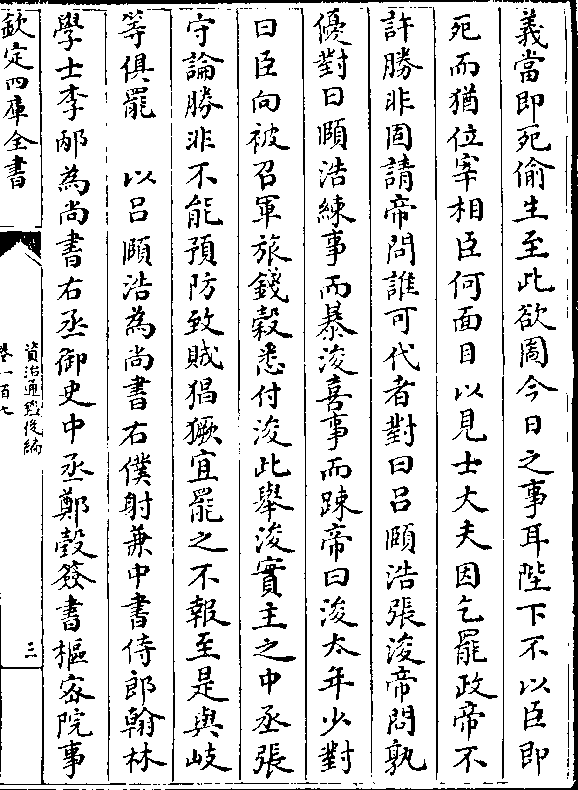 義當即死偷生至此欲圖今日之事耳陛下不以臣即
死而猶位宰相臣何面目以見士大夫因乞罷政帝不
許勝非固請帝問誰可代者對曰吕頤浩張浚帝問孰
優對曰頤浩練事而暴浚喜事而踈帝曰浚太年少對
曰臣向被召軍旅錢榖悉付浚此舉浚實主之中丞張
守論勝非不能預防致賊猖獗宜罷之不報至是與岐
等俱罷　以吕頤浩為尚書右僕射兼中書侍郎翰林
學士李邴為尚書右丞御史中丞鄭瑴簽書樞宻院事
欽定四庫全書
資治通鑑後編
卷一百七
三